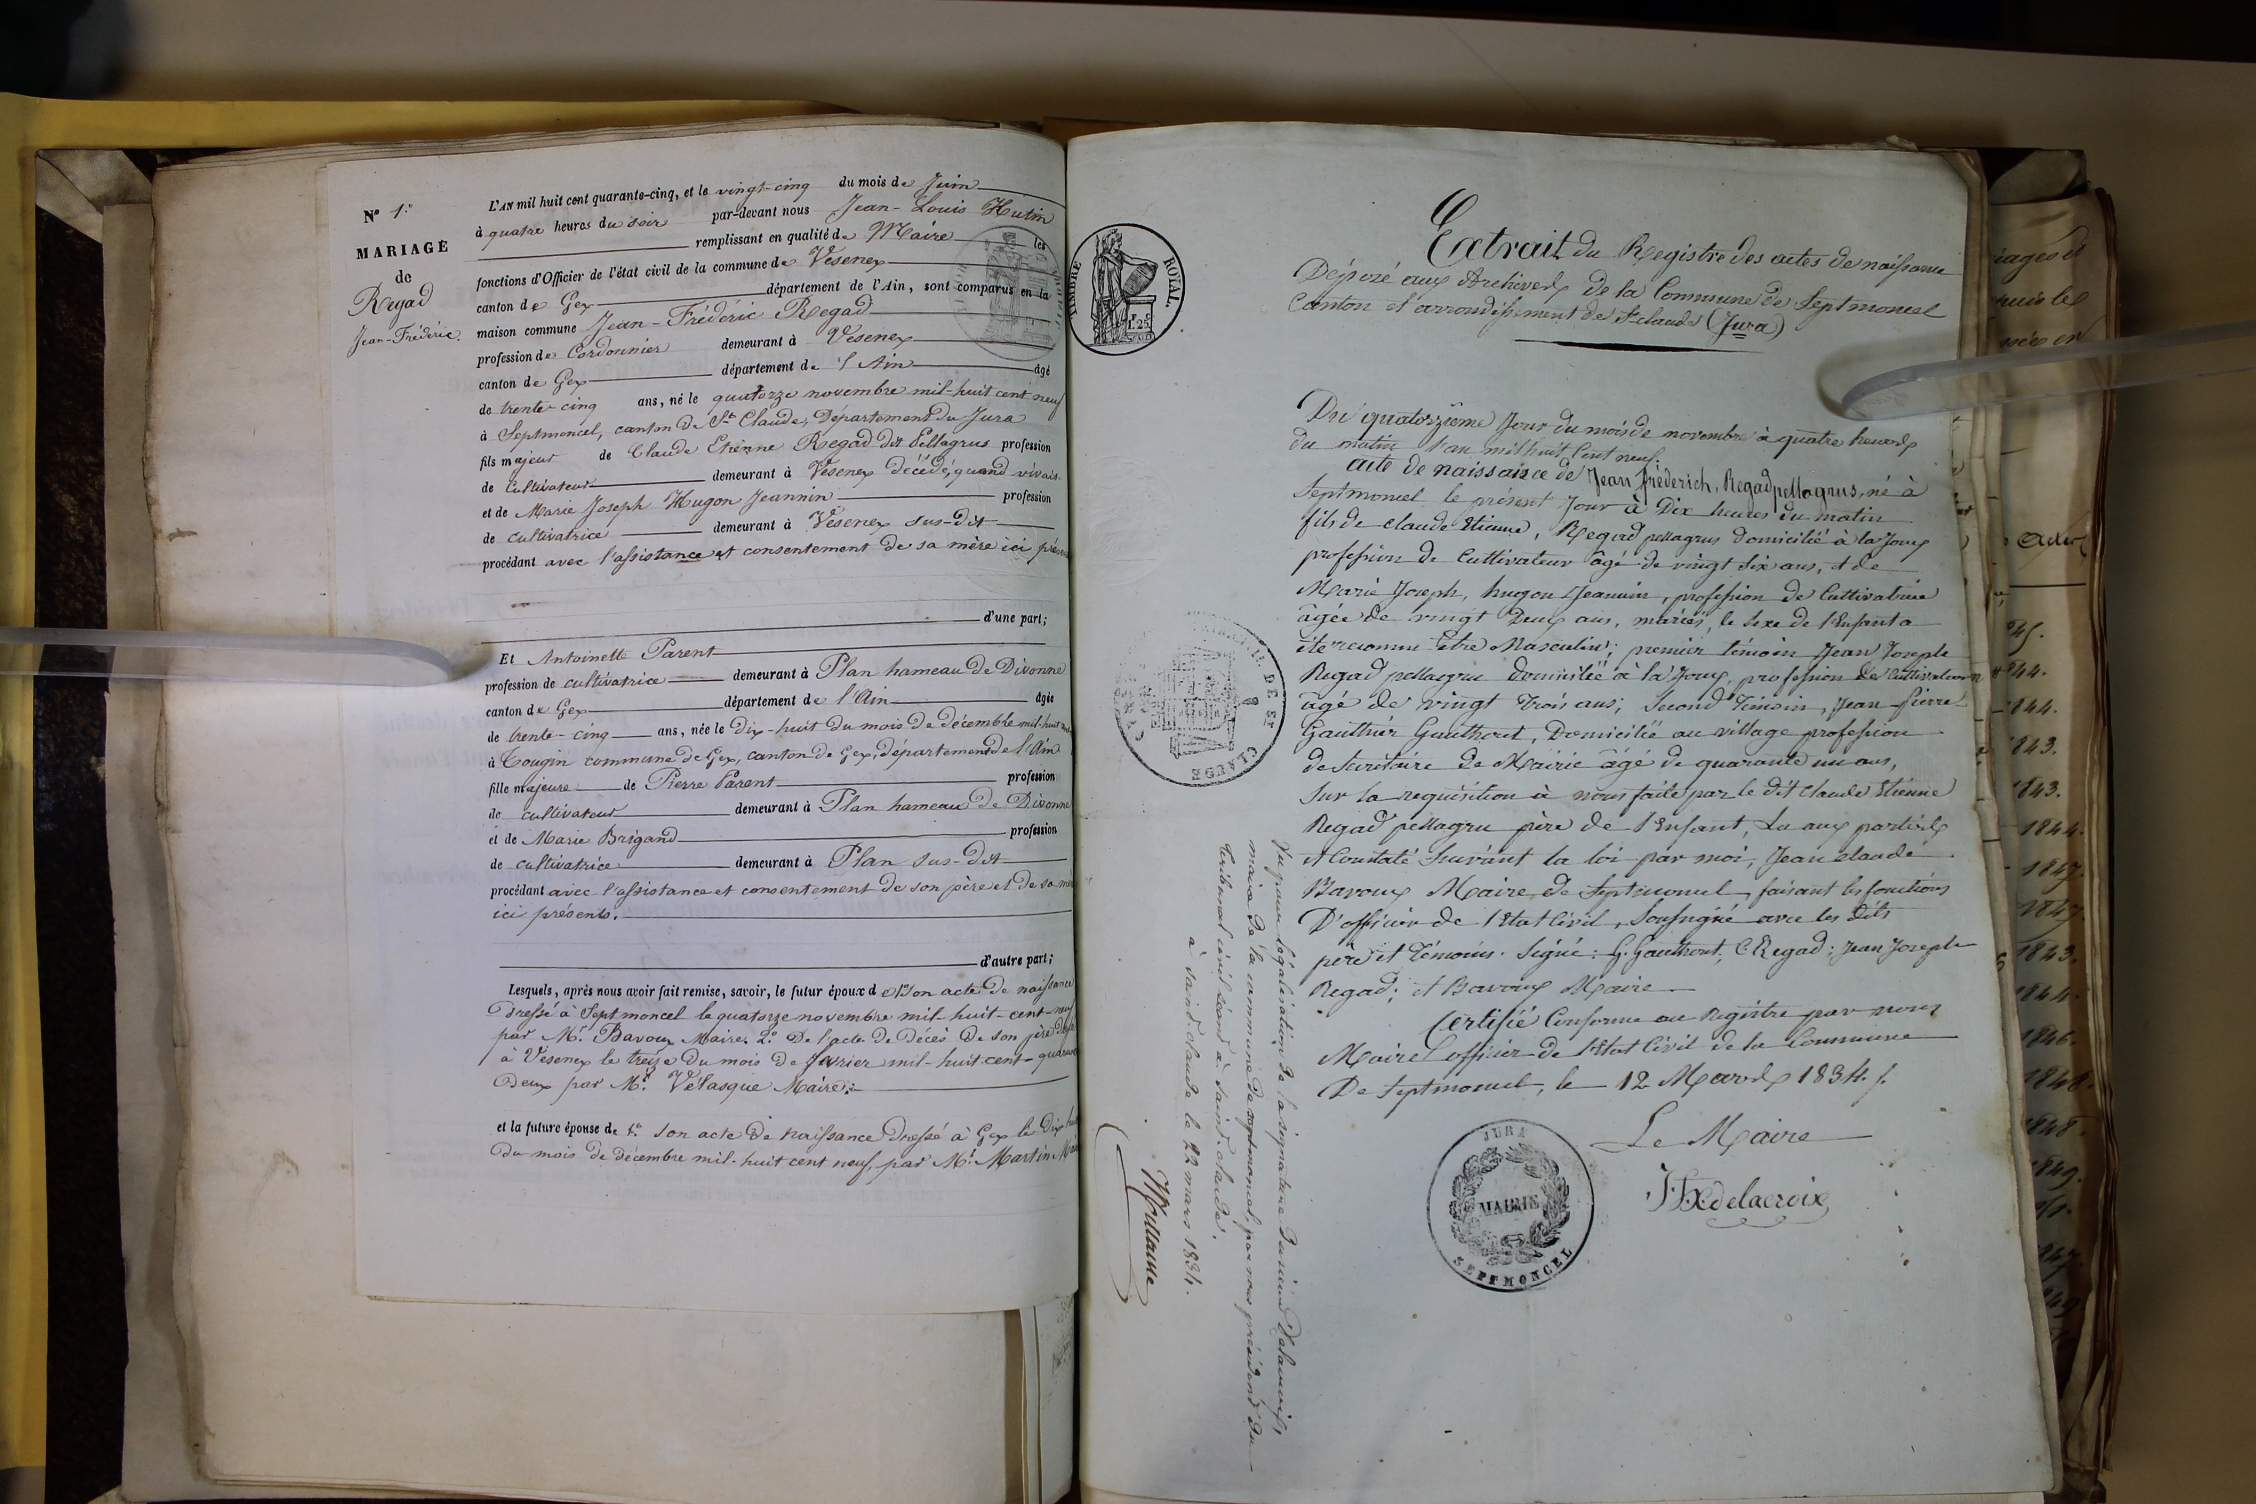 N° 1.°
MARIAGE
de
Regad
Jean-Frédéric.
L'AN mil huit cent quarante-cinq, et le vingt-cinq du mois de Juin
à quatre heures du soir par-devant nous Jean-Louis Hutin
remplissant en qualité de Maire les
fonctions d'Officier de l'état civil de la commune de Vesenex
canton de Gex département de l'Ain, sont comparus en la
maison commune Jean-Frédéric Regad
profession de Cordonnier demeurant à Vesenex
canton de Gex département de l'Ain âgé
de trente-cinq ans, né le quatorze novembre mil-huit cent neuf
à Septmoncel, canton de St Claude, Département du Jura
fils majeur de Claude Etienne Regad dit Pellagrus profession
de Cultivateur demeurant à Vesenex décédé, quand vivait
et de Marie Joseph Hugon Jeannin profession
de cultivatrice demeurant à Vesenex sus-dit
procédant avec l'assistance et consentement de sa mère ici
d'une part;
Et Antoinette Parent
profession de cultivatrice demeurant à Plan hameau de Divonne
canton de Gex département de l'Ain âgée
de trente-cinq ans, née le Dix-huit du mois de décembre mil-huit
à Tougin commune de Gex, canton de Gex, département de l'Ain
fille majeure de Pierre Parent profession
de cultivateur demeurant à Plan hameau de Divonne
et de Marie Brigand profession
de cultivatrice demeurant à Plan sus-dit
procédant avec l'assistance et consentement de son père et de sa
ici présents.
d'autre part;
Lesquels, après nous avoir fait remise, savoir, le futur époux de 1° son acte de naissance
Dressé à Septmoncel le quatorze novembre mil-huit-cent-neuf
par Mr. Bavoux Maire. 2° De l'acte de Décès de son père
à Vesenex le treize du mois de février mil-huit-cent-
Deux par Mr. Vélasque Maire.
et la future épouse de 1° son acte de naissance Dressé à Gex le Dix
du mois de décembre mil-huit cent neuf, par Mr. Martin
TIMBRE ROYAL.
1 F. 25 C.
Extrait du Registre des actes de naissance
Déposé aux Archives de la Commune de Septmoncel
Canton et arrondissement de St claude (Jura)
Du quatorzième Jour du mois de novembre à quatre heures
du matin l'an mil huit Cent neuf.
acte de naissance de Jean Fréderich, Regad pellagrus, né à
Septmoncel le présent Jour à Dix heures du matin
fils de claude Etienne, Regad pellagrus domicilié à la Joux
profession de Cultivateur âgé de vingt six ans, et de
Marie Joseph, hugon Jeannin, profession de Cultivatrice
âgée de vingt Deux ans, mariés, le Sexe de l'Enfant a
été reconnu Etre Masculin; premier témoin Jean Joseph
Regad pellagru domicilié à la Joux, profession de Cultivateur
âgé de vingt trois ans; Second Témoin, Jean pierre
Gauthier Gautheret, Domicilié au village profession
de Secrétaire de Mairie âgé de quarante un ans,
Sur la requisition à nous faite par le dit claude Etienne
Regad pellagru père de l'Enfant, Lu aux parties
et Constaté Suivant la loi par moi, Jean claude
Bavoux Maire de Septmoncel, faisant les fonctions
D'officier de l'Etat Civil, Soussigné avec les dits
père et témoins. Signé: G. Gautheret; C. Regad; Jean Joseph
Regad; et Bavoux Maire
Certifié Conforme au Registre par nous
Maire officier de l'Etat Civil de la Commune
De Septmoncel, le 12 Mars 1834.
Le Maire
JURA
MAIRIE
SEPTMONCEL
Vu pour légalisation de la signature
maire de la commune de septmoncel, par nous président du
tribunal civil séant à saint-claude.
à saint-claude le 22 mars 1834.
1844.
1844.
1843.
1843.
1844.
1847.
1847.
1843.
1844.
1846.
1848.
1848.
1849.